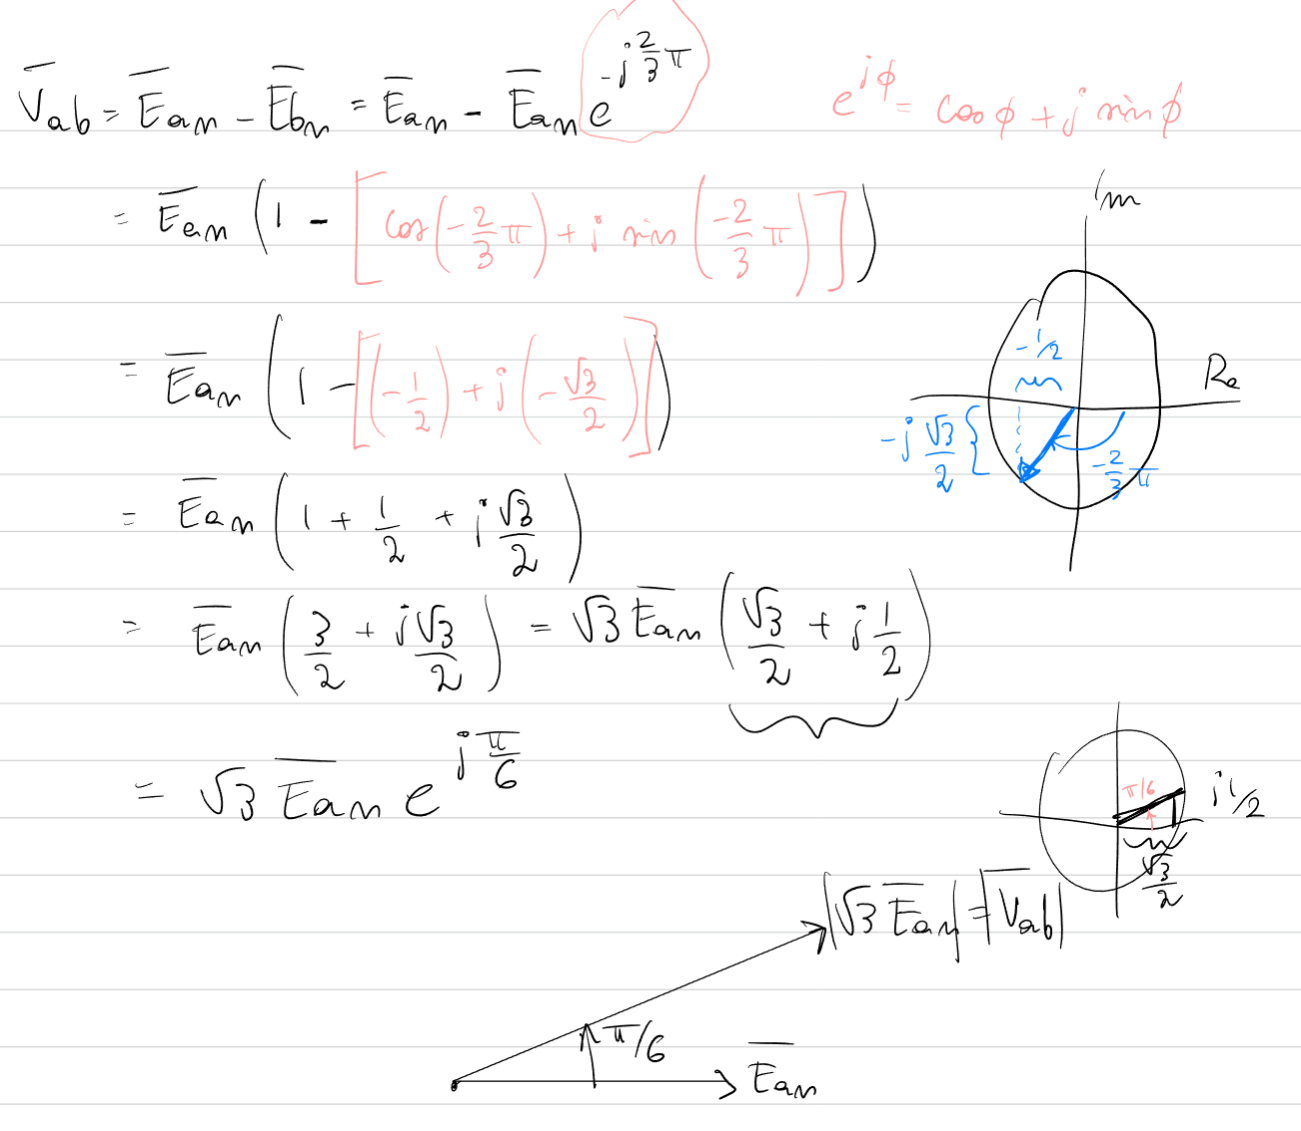 V̅ab = E̅an - E̅bn = E̅an - E̅an e^{-j 2/3 π}
e^{jϕ} = cos ϕ + j sin ϕ
= E̅an (1 - [cos(-2/3 π) + j sin(-2/3 π)])
Im
= E̅an (1 - [(-1/2) + j(-√3/2)])
-1/2
Re
-j √3/2 {
-2/3 π
= E̅an (1 + 1/2 + j √3/2)
= E̅an (3/2 + j √3/2) = √3 E̅an (√3/2 + j 1/2)
= √3 E̅an e^{j π/6}
π/6
j 1/2
√3/2
|√3 E̅an| = |V̅ab|
π/6
E̅an